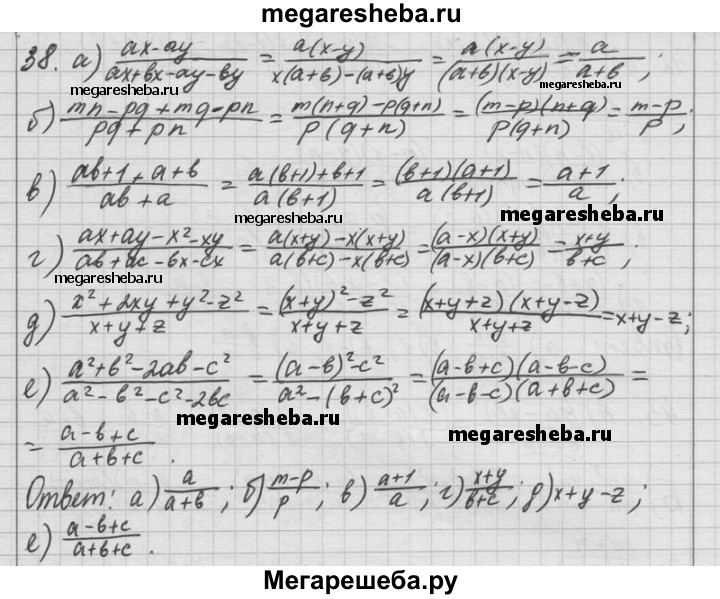 megaresheba.ru
38. а) (ax-ay)/(ax+bx-ay-by) = a(x-y)/(x(a+b)-(a+b)y) = a(x-y)/((a+b)(x-y)) = a/(a+b);
megaresheba.ru megaresheba.ru
б) (mn-pq+mq-pn)/(pq+pn) = (m(n+q)-p(q+n))/(p(q+n)) = ((m-p)(n+q))/(p(q+n)) = (m-p)/p;
в) (ab+1+a+b)/(ab+a) = (a(b+1)+b+1)/(a(b+1)) = ((b+1)(a+1))/(a(b+1)) = (a+1)/a;
megaresheba.ru megaresheba.ru
г) (ax+ay-x²-xy)/(ab+ac-bx-cx) = (a(x+y)-x(x+y))/(a(b+c)-x(b+c)) = ((a-x)(x+y))/((a-x)(b+c)) = (x+y)/(b+c);
megaresheba.ru
д) (x²+2xy+y²-z²)/(x+y+z) = ((x+y)²-z²)/(x+y+z) = ((x+y+z)(x+y-z))/(x+y+z) = x+y-z;
е) (a²+b²-2ab-c²)/(a²-b²-c²-2bc) = ((a-b)²-c²)/(a²-(b+c)²) = ((a-b+c)(a-b-c))/((a-b-c)(a+b+c)) =
megaresheba.ru
= (a-b+c)/(a+b+c).
megaresheba.ru
Ответ: а) a/(a+b); б) (m-p)/p; в) (a+1)/a; г) (x+y)/(b+c); д) x+y-z;
е) (a-b+c)/(a+b+c).
megaresheba.ru
Мегарешеба.ру